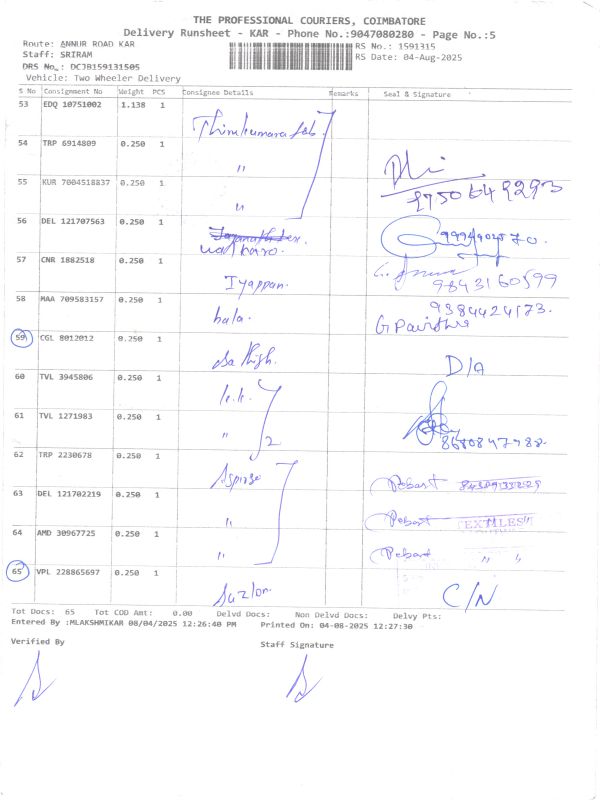 THE PROFESSIONAL COURIERS, COIMBATORE
Delivery Runsheet - KAR - Phone No.:9047080280 - Page No.:5
Route: ANNUR ROAD KAR RS No.: 1591315
Staff: SRIRAM RS Date: 04-Aug-2025
DRS No.: DCJB159131505
Vehicle: Two Wheeler Delivery
S No Consignment No Weight PCS Consignee Details Remarks Seal & Signature
53 EDQ 10751002 1.138 1
54 TRP 6914809 0.250 1 "
55 KUR 7004518837 0.250 1 "
56 DEL 121707563 0.250 1
57 CNR 1882518 0.250 1 Iyappan. 9843160599
58 MAA 709583157 0.250 1 bala. 9384424573.
59 CGL 8012012 0.250 1 Sathish. D/A
60 TVL 3945806 0.250 1
61 TVL 1271983 0.250 1 " 2
62 TRP 2230678 0.250 1
63 DEL 121702219 0.250 1 " TEXTILES
64 AMD 30967725 0.250 1 " " "
65 VPL 228865697 0.250 1 Suzlon C/N
Tot Docs: 65 Tot COD Amt: 0.00 Delvd Docs: Non Delvd Docs: Delvy Pts:
Entered By :MLAKSHMIKAR 08/04/2025 12:26:40 PM Printed On: 04-08-2025 12:27:30
Verified By Staff Signature